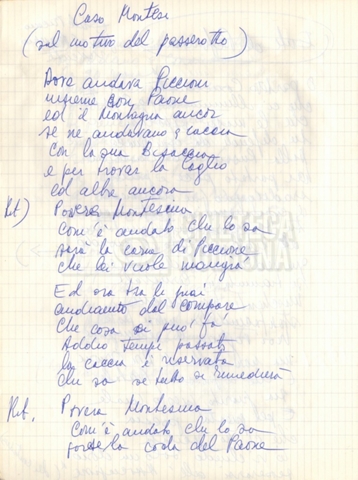 Caso Montesi
(sul motivo del passerotto)
Dove andava Piccioni
insieme con Paone
ed il Montagna ancor
se ne andavano a caccia
con la sua Bisaccia
e per trovar la Caglio
ed altre ancora
Rit) Povera Montesina
com'è andato chi lo sa
sarà la carne di Piccione
che lei vuole mangià
Ed ora tra li guai
andiamo dal compare
Che cosa si può fà
Addio tempi passati
la caccia è riservata
Chi sa se tutto si rimedierà
Rit. Povera Montesina
Com'è andato chi lo sa
forse la coda del Paone